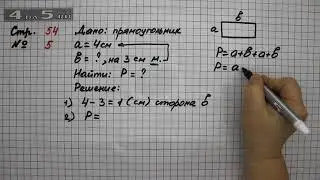 4 на 5.RU
Стр. 54
№ 5
Дано: прямоугольник
a = 4см
в = ?, на 3 см м.
Найти: P = ?
Решение:
1) 4 - 3 = 1 (см) сторона в
2) P =
в
a
P = a+в+a+в
P = a